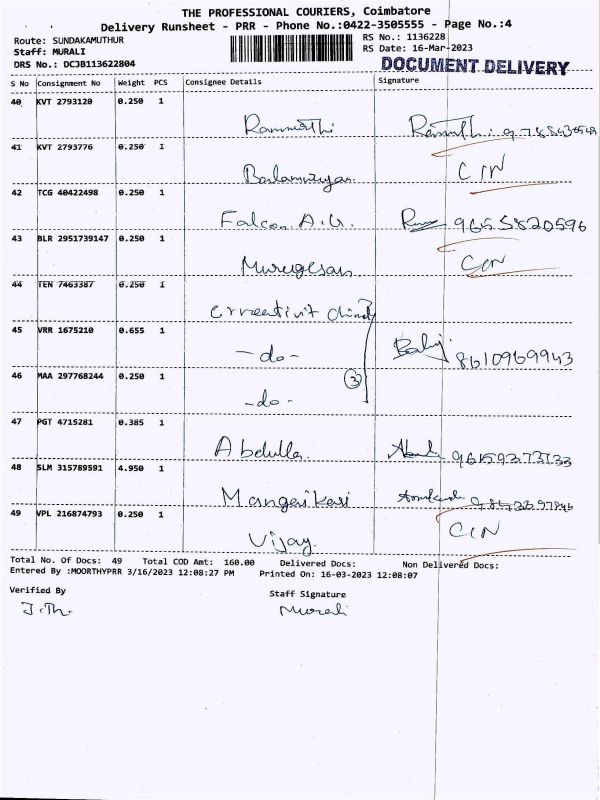 THE PROFESSIONAL COURIERS, Coimbatore
Delivery Runsheet - PRR - Phone No.:0422-3505555 - Page No.:4
Route: SUNDAKAMUTHUR RS No.: 1136228
Staff: MURALI RS Date: 16-Mar-2023
DRS No.: DCJB113622804 DOCUMENT DELIVERY
S No Consignment No Weight PCS Consignee Details Signature
40 KVT 2793120 0.250 1
41 KVT 2793776 0.250 1
Balamurugan CIN
42 TCG 40422498 0.250 1
Falcon A.U. 9655820596
43 BLR 2951739147 0.250 1
Murugesan CIN
44 TEN 7463387 0.250 1
45 VRR 1675210 0.655 1
-do- 8610969943
46 MAA 297768244 0.250 1
3
-do-
47 PGT 4715281 0.385 1
Abdulla 96159273733
48 SLM 315789591 4.950 1
49 VPL 216874793 0.250 1
Vijay CIN
Total No. Of Docs: 49 Total COD Amt: 160.00 Delivered Docs: Non Delivered Docs:
Entered By :MOORTHYPRR 3/16/2023 12:08:27 PM Printed On: 16-03-2023 12:08:07
Verified By Staff Signature
Murali